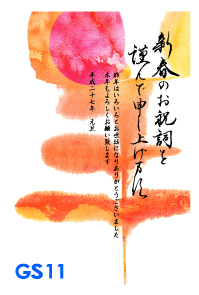 新春のお祝詞を
謹んで申し上げます
昨年はいろいろとお世話になりありがとうございました
本年もよろしくお願い致します
平成二十七年 元旦
GS11